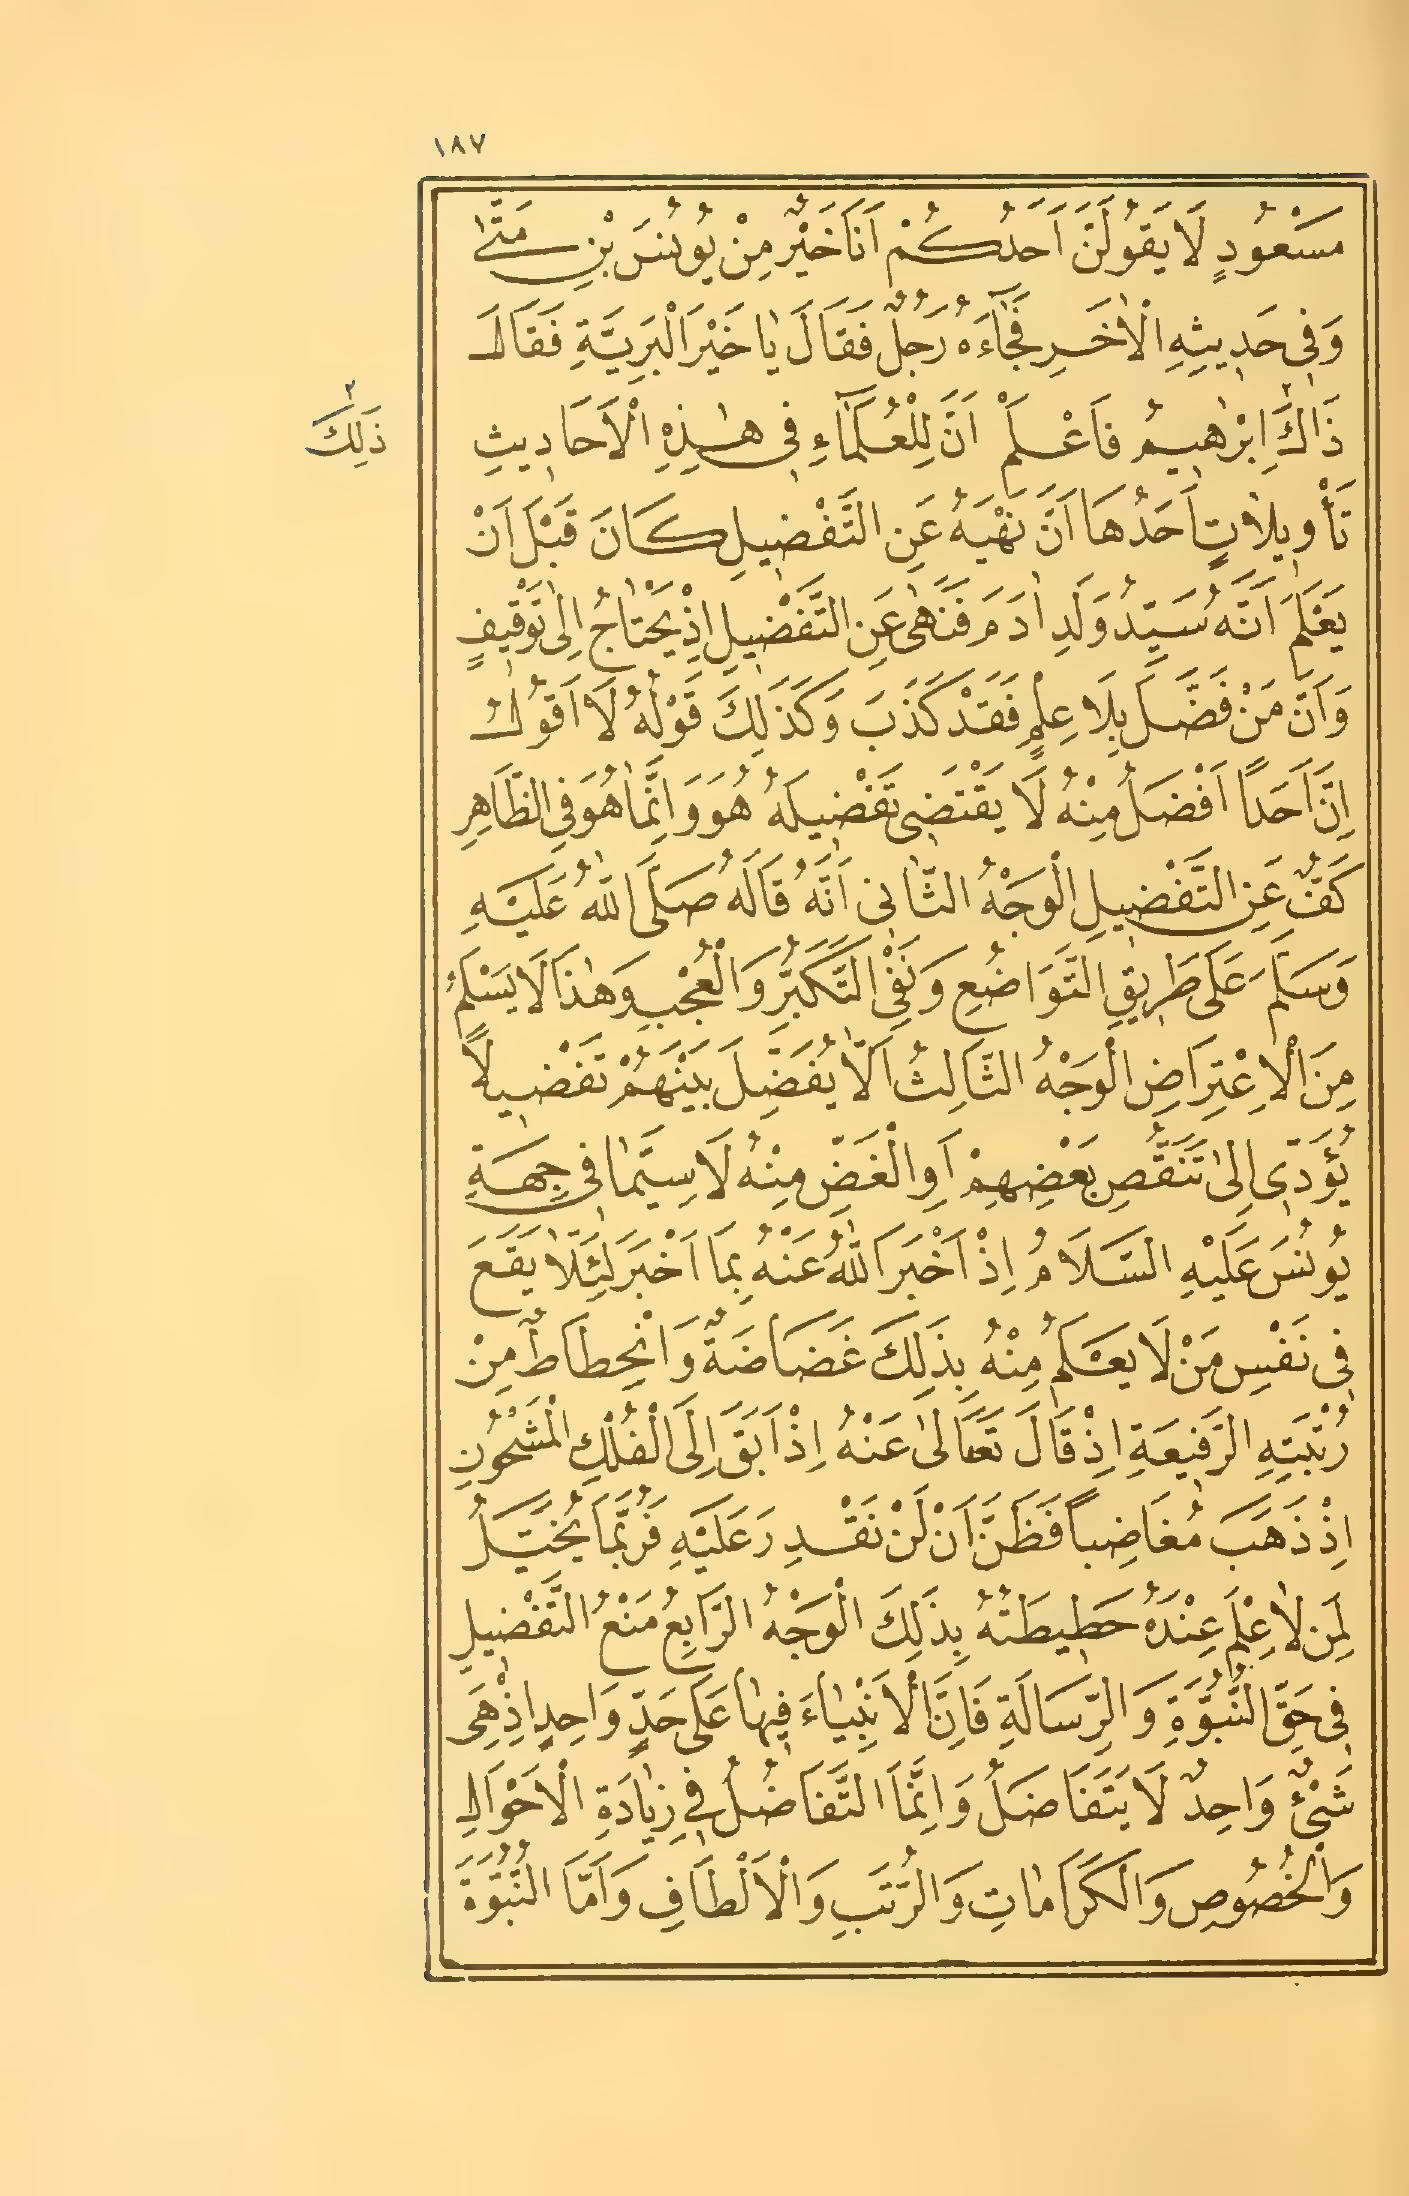 ١٨٧
مَسْعُودٍ لَا يَقُولَنَّ اَحَدُكُمْ اَنَا خَيْرٌ مِنْ يُونُسَ بْنِ مَتّٰى
وَفِى حَدِيثِهِ الْاٰخَرِ فَجَآءَهُ رَجُلٌ فَقَالَ يَا خَيْرَ الْبَرِيَّةِ فَقَالَ
ذَاكَ اِبْرٰهِيمُ فَاعْلَمْ اَنَّ لِلْعُلَمَآءِ فِى هٰذِهِ الْاَحَادِيثِ
٢
ذَلِكَ
تَأْوِيلَاتٍ اَحَدُهَا اَنَّ نَهْيَهُ عَنِ التَّفْضِيلِ كَانَ قَبْلَ اَنْ
يَعْلَمَ اَنَّهُ سَيِّدُ وَلَدِ اٰدَمَ فَنَهٰى عَنِ التَّفْضِيلِ اِذْ يَحْتَاجُ اِلٰى تَوْقِيفٍ
وَاَنَّ مَنْ فَضَّلَ بِلَا عِلْمٍ فَقَدْ كَذَبَ وَكَذَلِكَ قَوْلُهُ لَا اَقُولُ
اِنَّ اَحَدًا اَفْضَلُ مِنْهُ لَا يَقْتَضِى تَفْضِيلَهُ هُوَ وَاِنَّمَا هُوَ فِى الظَّاهِرِ
كَفٌّ عَنِ التَّفْضِيلِ الْوَجْهُ الثَّانِى اَنَّهُ قَالَهُ صَلَّى اللّٰهُ عَلَيْهِ
وَسَلَّمَ عَلَى طَرِيقِ التَّوَاضُعِ وَنَفْىِ التَّكَبُّرِ وَالْعُجْبِ وَهٰذَا لَا يَسْلَمُ
مِنَ الْاِعْتِرَاضِ الْوَجْهُ الثَّالِثُ اَلَّا يُفَضِّلَ بَيْنَهُمْ تَفْضِيلًا
يُؤَدِّى اِلٰى تَنَقُّصِ بَعْضِهِمْ اَوِ الْغَضِّ مِنْهُ لَا سِيَّمَا فِى جِهَةِ
يُونُسَ عَلَيْهِ السَّلَامُ اِذْ اَخْبَرَ اللّٰهُ عَنْهُ بِمَا اَخْبَرَ لِئَلَّا يَقَعَ
فِى نَفْسِ مَنْ لَا يَعْلَمُ مِنْهُ بِذَلِكَ غَضَاضَةٌ وَانْحِطَاطٌ مِنْ
رُتْبَتِهِ الرَّفِيعَةِ اِذْ قَالَ تَعَالٰى عَنْهُ اِذْ اَبَقَ اِلَى الْفُلْكِ الْمَشْحُونِ
اِذْ ذَهَبَ مُغَاضِبًا فَظَنَّ اَنْ لَنْ نَقْدِرَ عَلَيْهِ فَرُبَّمَا يُخَيَّلُ
لِمَنْ لَا عِلْمَ عِنْدَهُ حَطِيطَتُهُ بِذَلِكَ الْوَجْهُ الرَّابِعُ مَنْعُ التَّفْضِيلِ
فِى حَقِّ النُّبُوَّةِ وَالرِّسَالَةِ فَاِنَّ الْاَنْبِيَاءَ فِيهَا عَلَى حَدٍّ وَاحِدٍ اِذْ هِىَ
شَىْءٌ وَاحِدٌ لَا يَتَفَاضَلُ وَاِنَّمَا التَّفَاضُلُ فِى زِيَادَةِ الْاَحْوَالِ
وَالْخُصُوصِ وَالْكَرَامَاتِ وَالرُّتَبِ وَالْاَلْطَافِ وَاَمَّا النُّبُوَّةُ